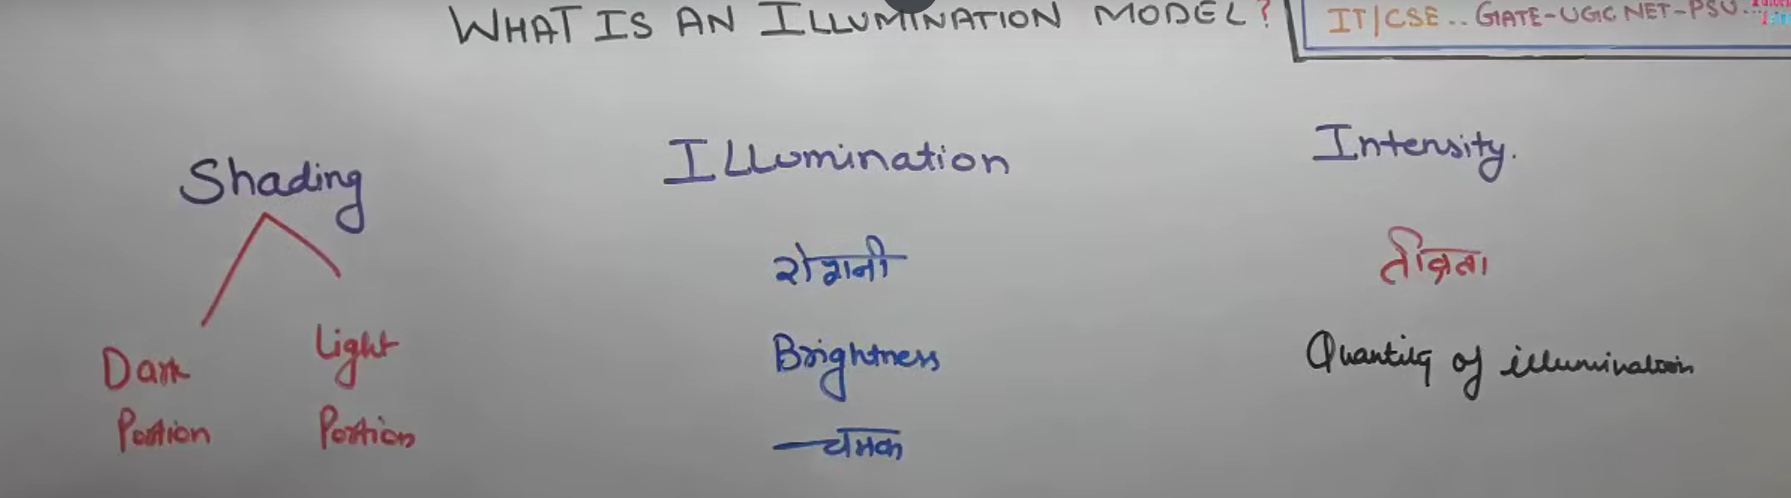 WHAT IS AN ILLUMINATION MODEL?
IT/CSE.. GATE-UGC NET-PSU...
Shading
Dark Portion
Light Portion
ILLumination
रोशनी
Brightness
चमक
Intensity.
तीव्रता
Quantity of illumination